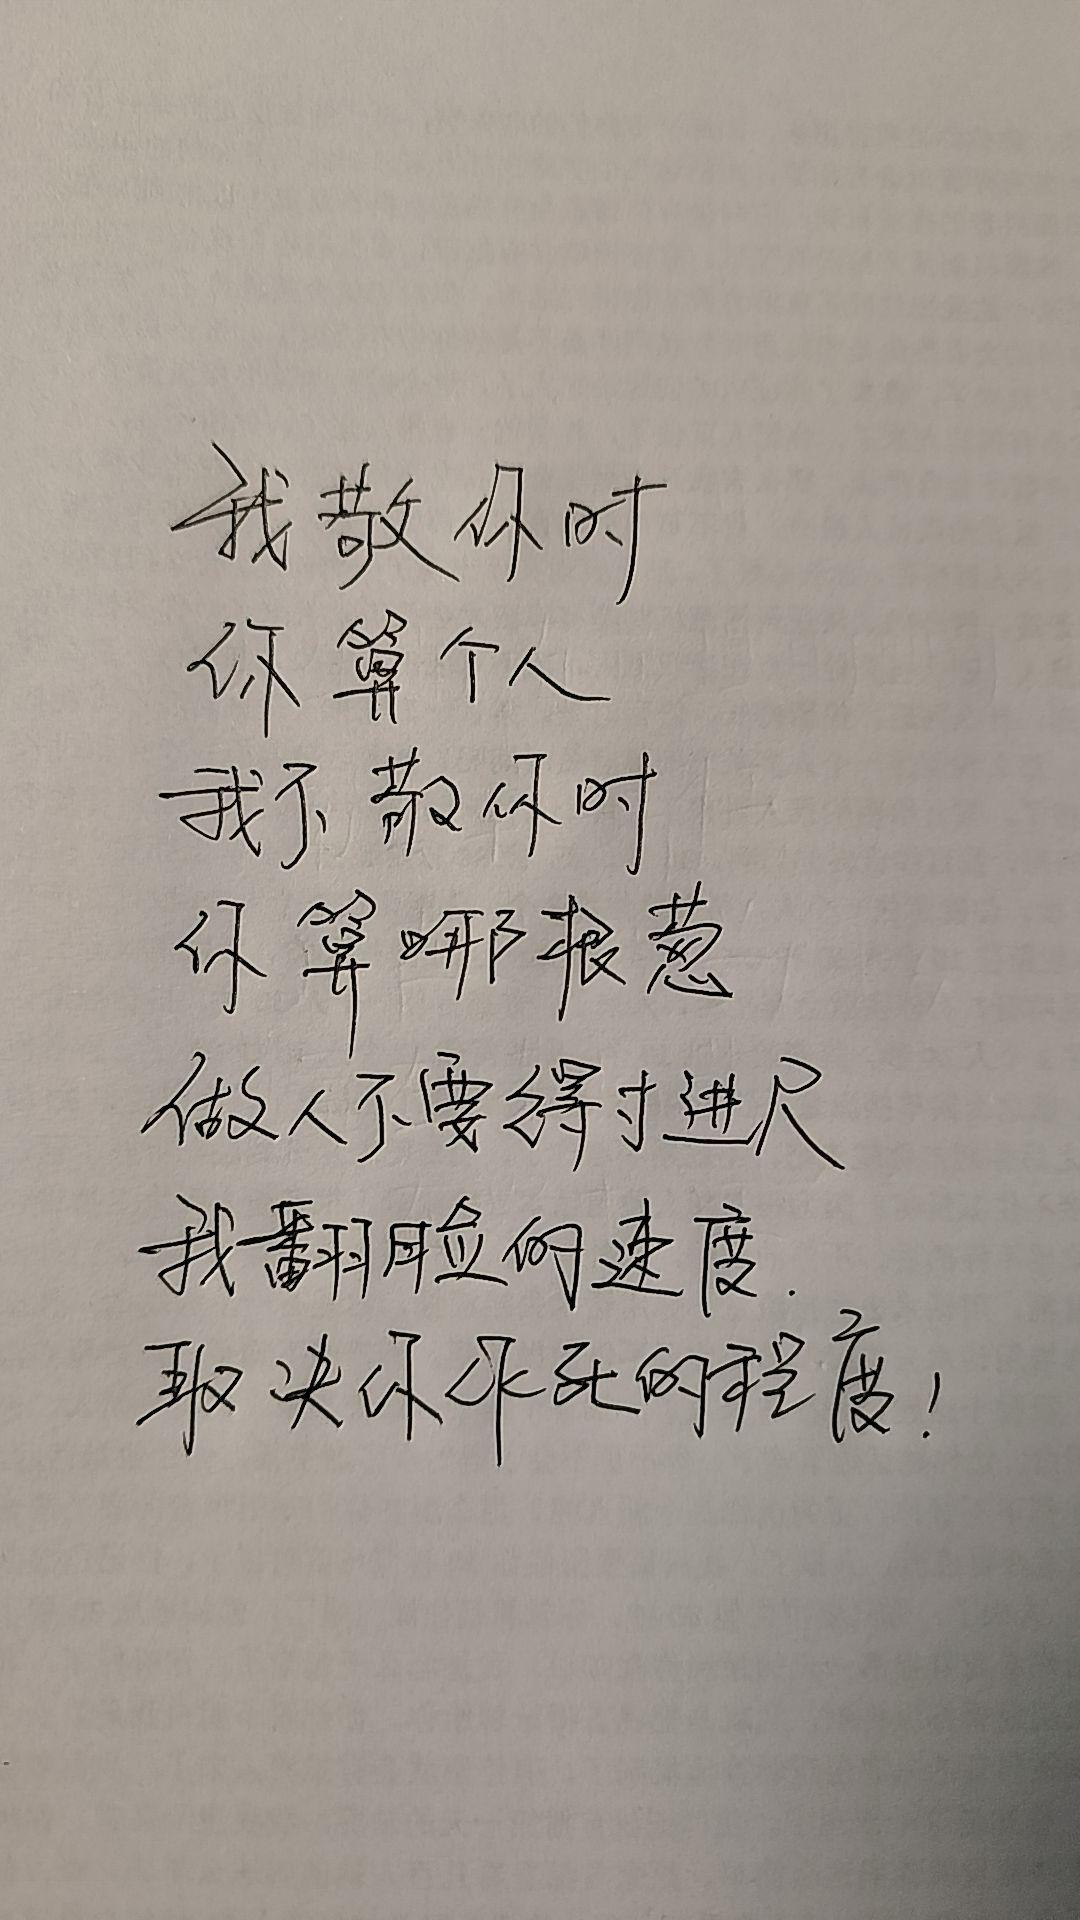 我敬你时
你算个人
我不敬你时
你算哪根葱
做人不要得寸进尺
我翻脸的速度.
取决你作死的程度!